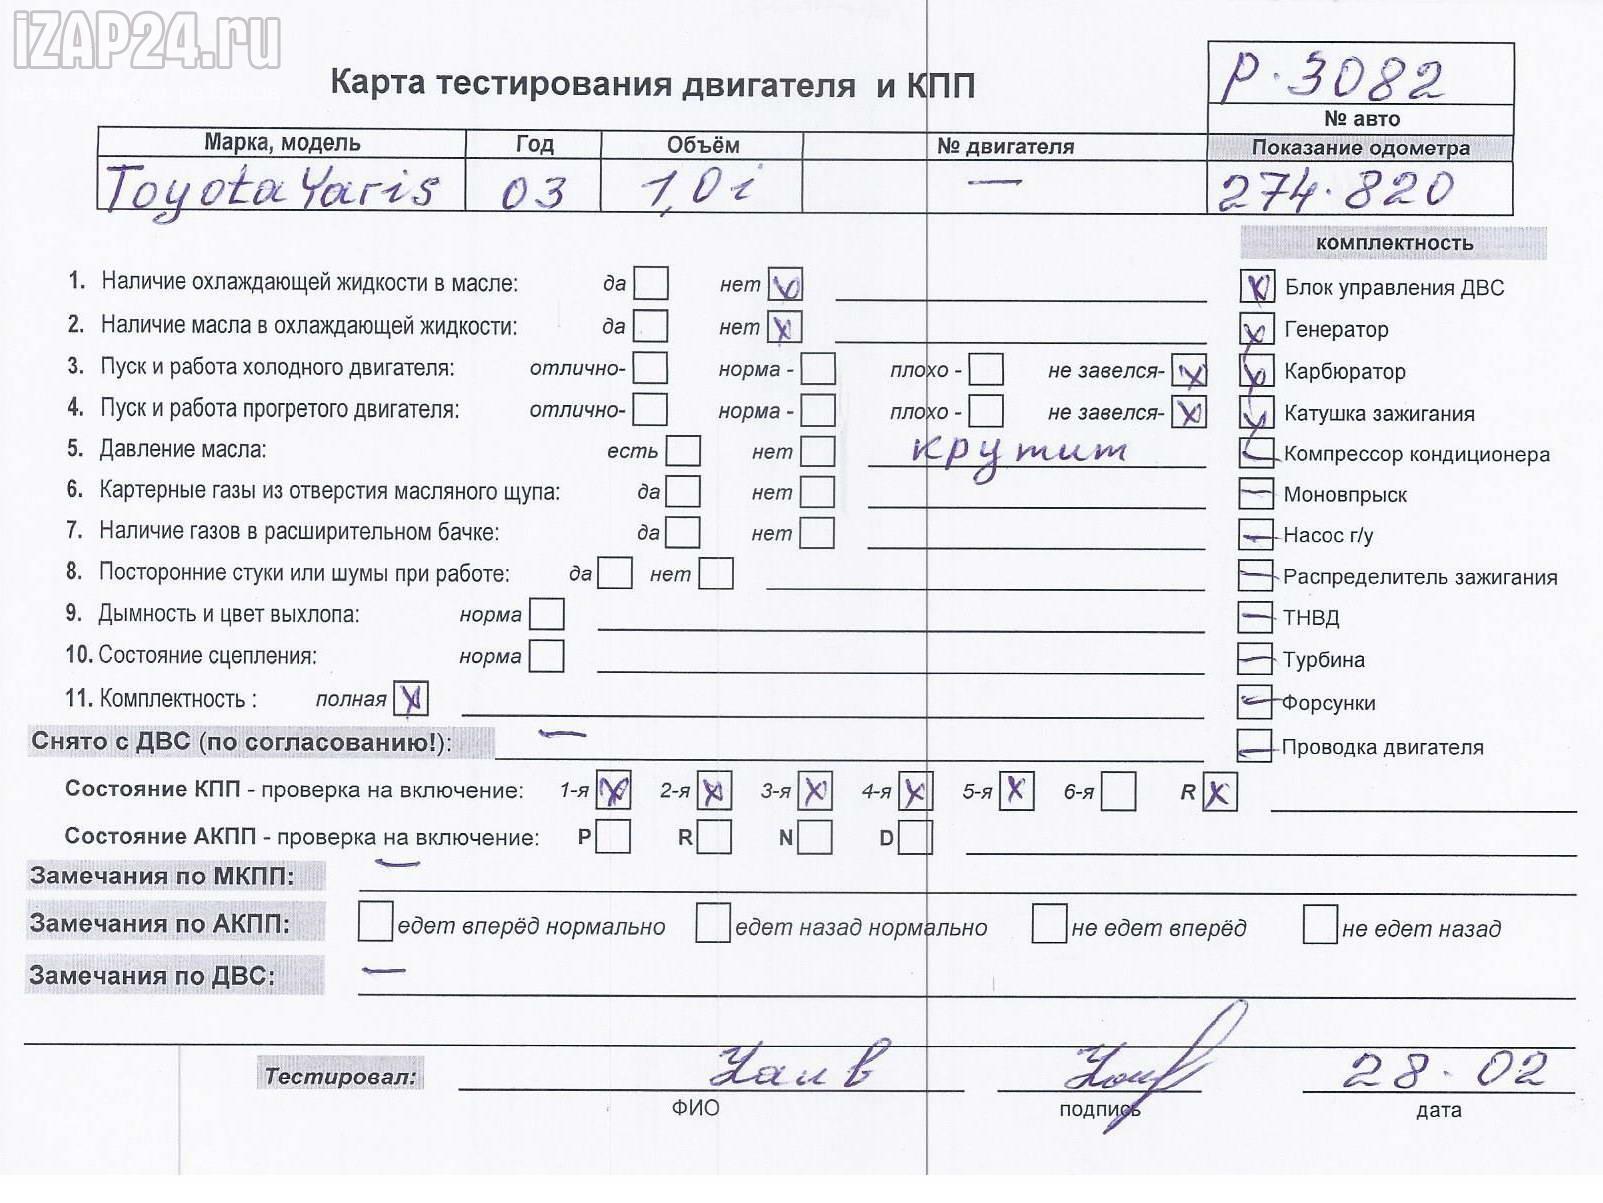 iZAP24.ru
Карта тестирования двигателя и КПП
Р.3082
№ авто
Марка, модель Год Объём № двигателя Показание одометра
Toyota Yaris 03 1,0i — 274.820
комплектность
1. Наличие охлаждающей жидкости в масле: да нет
Блок управления ДВС
2. Наличие масла в охлаждающей жидкости: да нет
Генератор
3. Пуск и работа холодного двигателя: отлично- норма - плохо - не завелся-
Карбюратор
4. Пуск и работа прогретого двигателя: отлично- норма - плохо - не завелся-
Катушка зажигания
5. Давление масла: есть нет крутит
Компрессор кондиционера
6. Картерные газы из отверстия масляного щупа: да нет
Моновпрыск
7. Наличие газов в расширительном бачке: да нет
Насос г/у
8. Посторонние стуки или шумы при работе: да нет
Распределитель зажигания
9. Дымность и цвет выхлопа: норма
ТНВД
10. Состояние сцепления: норма
Турбина
11. Комплектность : полная
Форсунки
Снято с ДВС (по согласованию!): —
Проводка двигателя
Состояние КПП - проверка на включение: 1-я 2-я 3-я 4-я 5-я 6-я R
Состояние АКПП - проверка на включение: P R N D
Замечания по МКПП: —
Замечания по АКПП: едет вперёд нормально едет назад нормально не едет вперёд не едет назад
Замечания по ДВС: —
Тестировал: 28.02
ФИО подпись дата